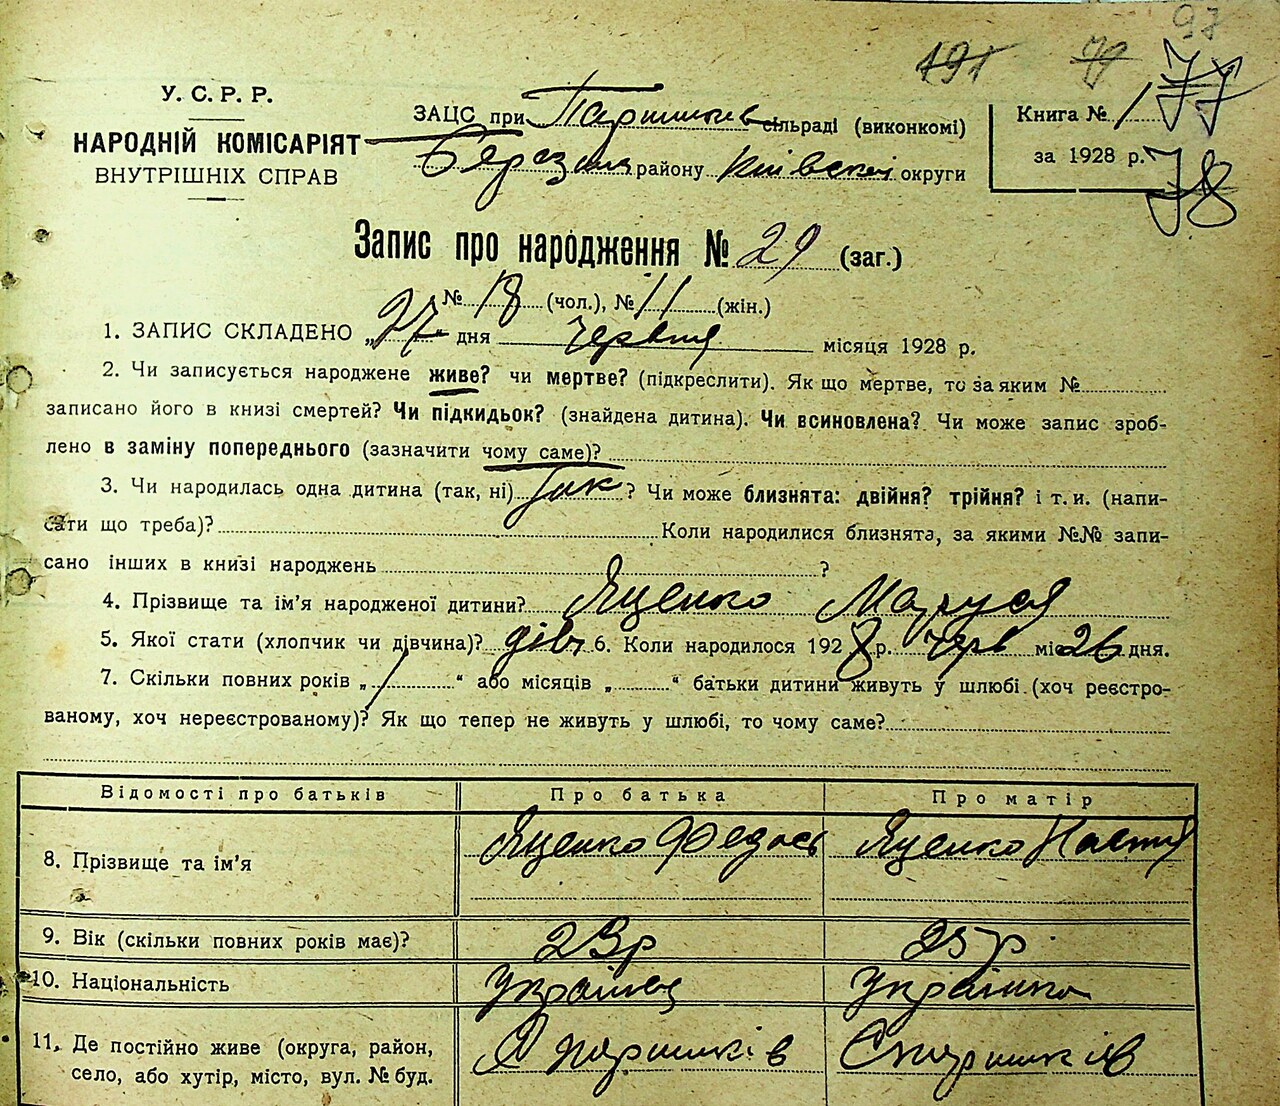 97
191 79 77
У. С. Р. Р.
НАРОДНІЙ КОМІСАРІЯТ
ВНУТРІШНІХ СПРАВ
ЗАЦС при Паришків сільраді (виконкомі)
району Київської округи
Книга № 1
за 1928 р.
78
Запис про народження № 29 (заг.)
№ 18 (чол.), № 11 (жін.)
1. ЗАПИС СКЛАДЕНО „27“ дня червня місяця 1928 р.
2. Чи записується народжене живе? чи мертве? (підкреслити). Як що мертве, то за яким №
записано його в книзі смертей? Чи підкидьок? (знайдена дитина). Чи всиновлена? Чи може запис зроб-
лено в заміну попереднього (зазначити чому саме)?
3. Чи народилась одна дитина (так, ні) Так? Чи може близнята: двійня? трійня? і т. и. (напи-
сати що треба)? Коли народилися близнята, за якими №№ запи-
сано інших в книзі народжень ?
4. Прізвище та ім’я народженої дитини? Яценко Маруся
5. Якої стати (хлопчик чи дівчина)? дівч 6. Коли народилося 1928 р. черв міс 26 дня.
7. Скільки повних років „ “ або місяців „ “ батьки дитини живуть у шлюбі (хоч реєстро-
ваному, хоч нереєстрованому)? Як що тепер не живуть у шлюбі, то чому саме?
Відомості про батьків Про батька Про матір
8. Прізвище та ім’я Яценко Федось Яценко Настя
9. Вік (скільки повних років має)? 23 р 25 р.
10. Національність Українец Українка
11. Де постійно живе (округа, район, Паришків С Паришків
село, або хутір, місто, вул. № буд.